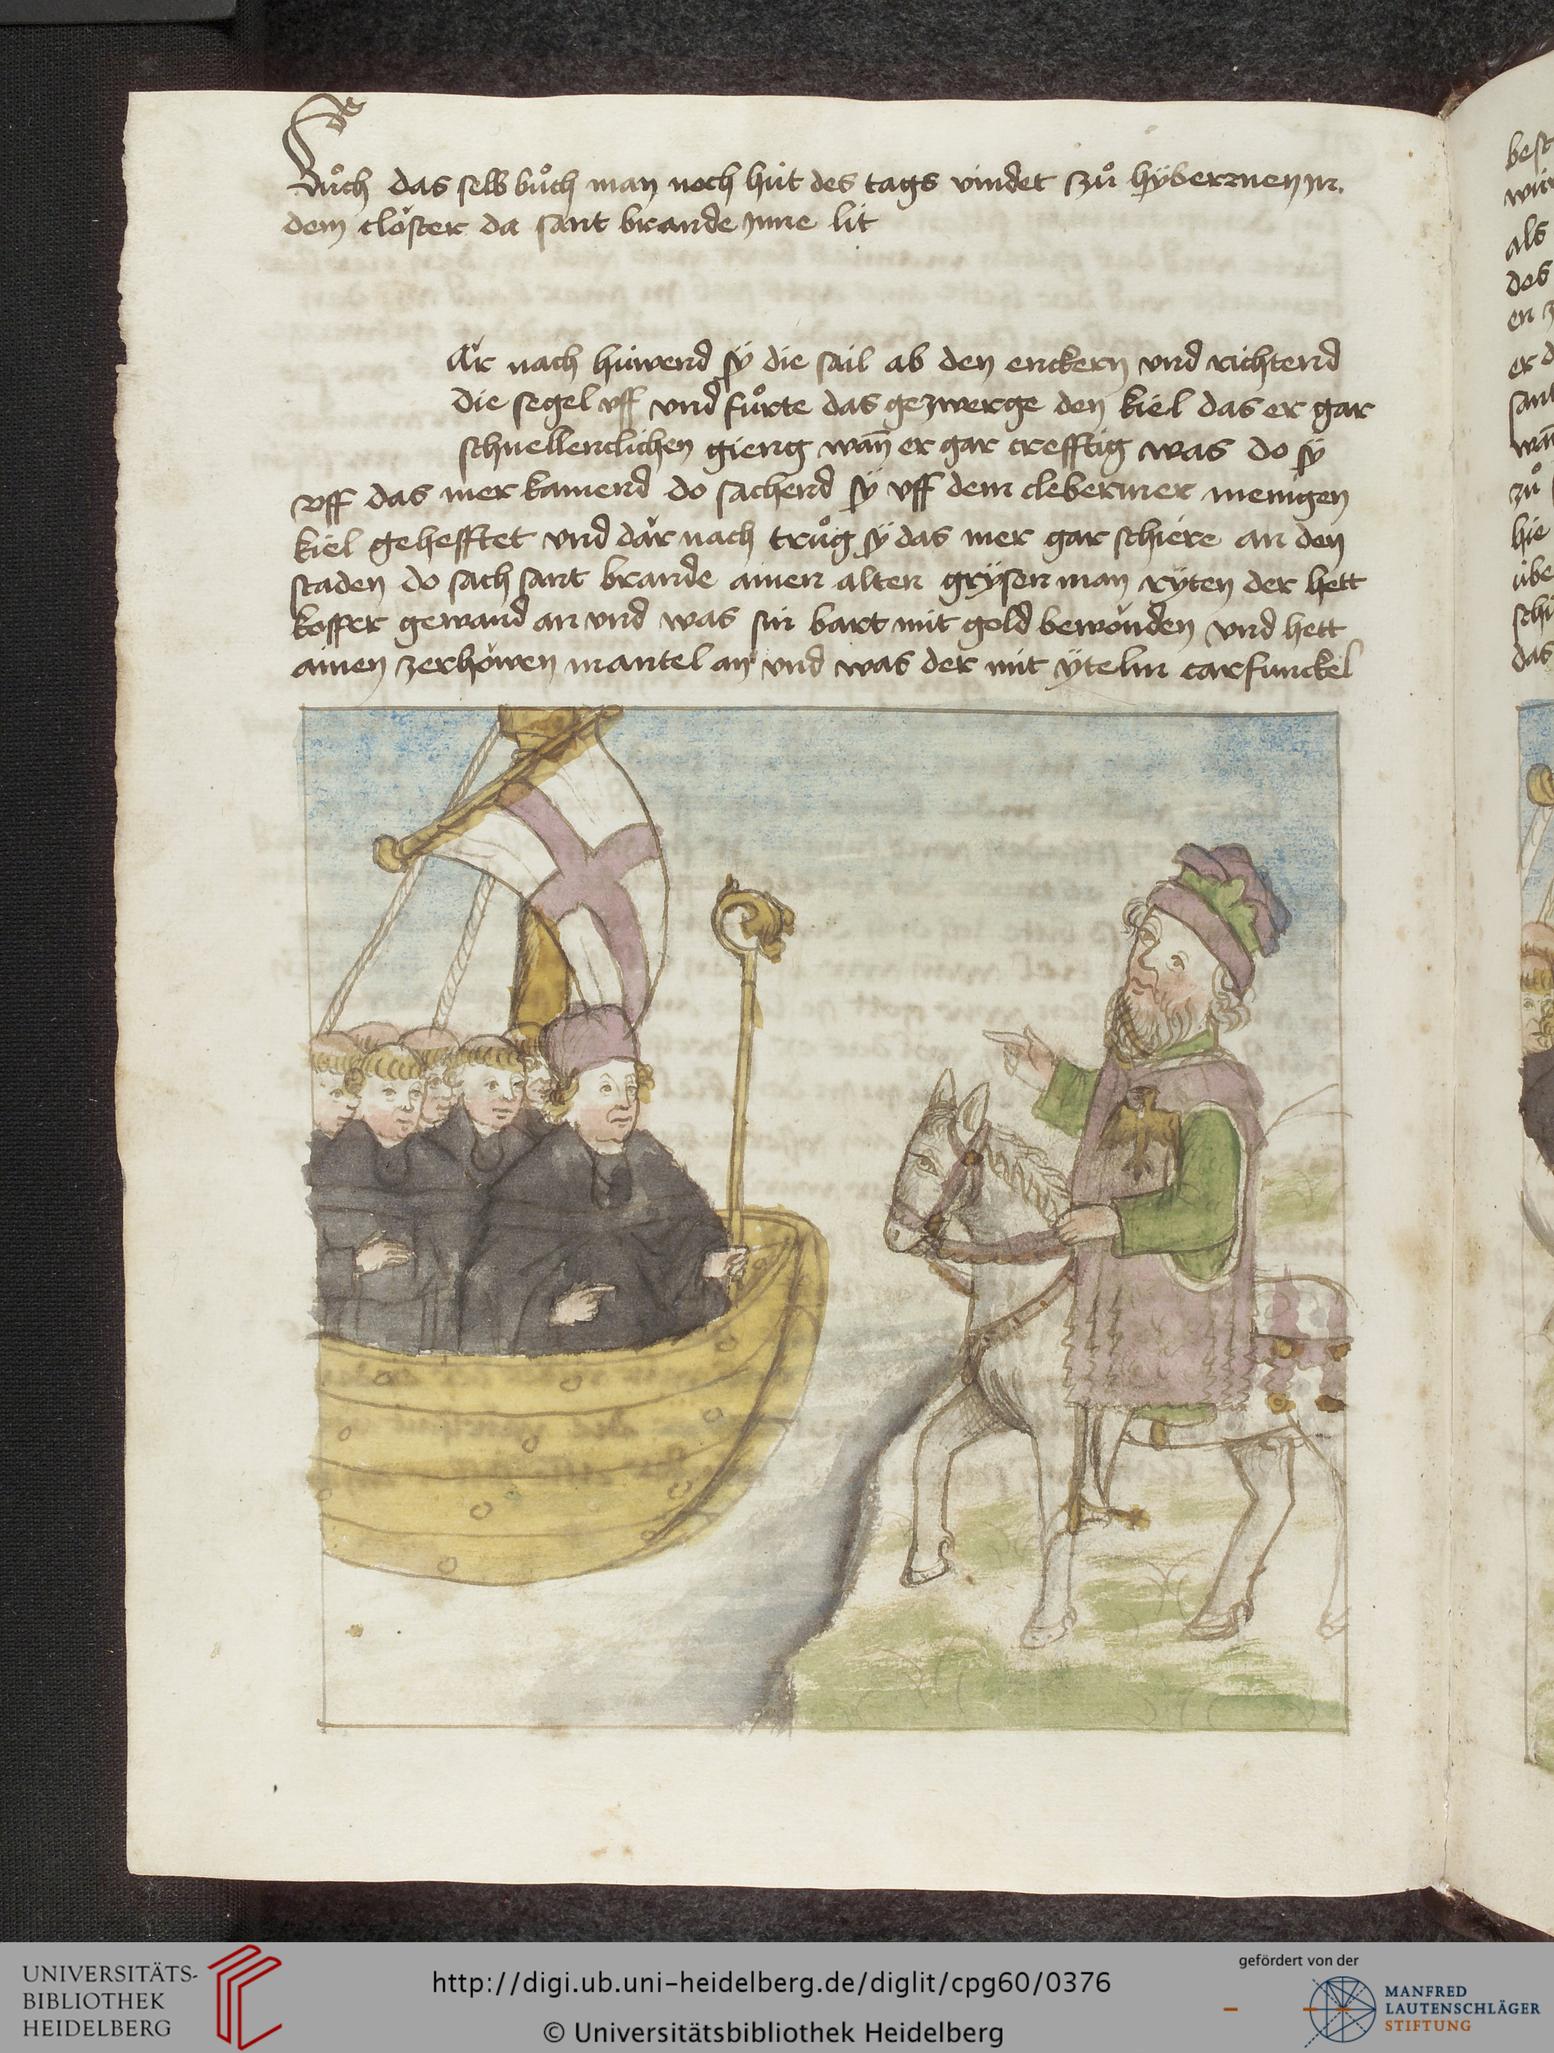 buͦch das selb buͦch man noch hüt des tags vindet zuͦ hÿbernien in
dem closter da sant brande inne lit
Är nach hüwend sÿ die sail ab den enckern vnd richtend
die segel vff vnd fuͦrte das gezwerge den kiel das er gar
schnellenclichen gieng wañ er gar crefftig was do sÿ
vff das mer kamend do sachend sÿ vff dem clebermer menigen
kiel gehefftet vnd där nach truͦg sÿ das mer gar schiere an den
staden do sach sant brande ainen alten grÿsen man rÿten der hett
koffer gewand an vnd was sin bart mit gold bewonden vnd hett
ainen zerhöwen mantel an vnd was der mit ÿtelin carfunckel
best
als
des
en
er
sant
zuͦ
hie
übe
schi
das
UNIVERSITÄTS-
BIBLIOTHEK
HEIDELBERG
http://digi.ub.uni-heidelberg.de/diglit/cpg60/0376
© Universitätsbibliothek Heidelberg
gefördert von der
MANFRED
LAUTENSCHLÄGER
STIFTUNG